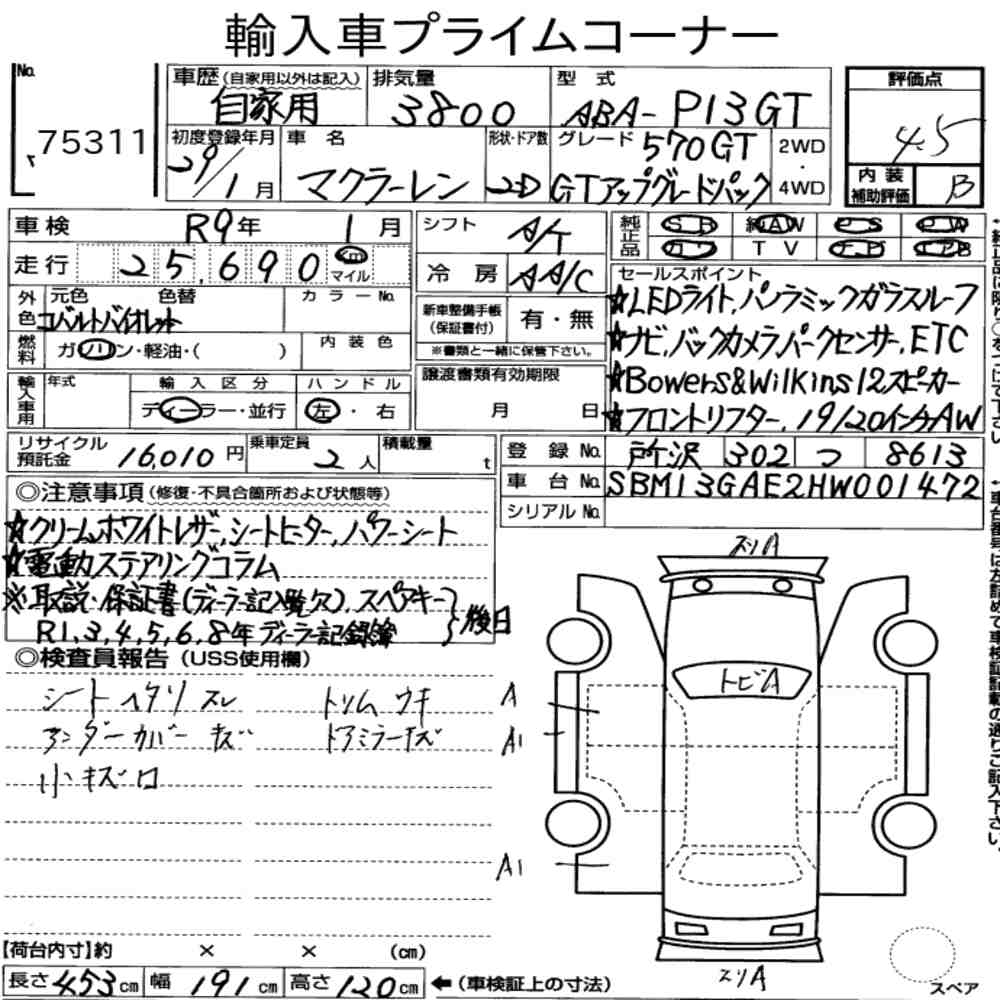 輸入車プライムコーナー
No.
75311
車歴(自家用以外は記入)
自家用
排気量
3800
型式
ABA-P13GT
評価点
4.5
初度登録年月
29/1月
車名
マクラーレン
形状・ドア数
2D
グレード 570GT
GTアップグレードパック
2WD
・
4WD
内装
補助評価
B
車検 R9年 1月
走行 25,690 km マイル
シフト A/T
冷房 AA/C
純正品
SR 純AW PS PW
カワ TV ナビ エアB
外色
元色 色替
コバルトバイオレット
カラーNo.
燃料
ガソリン・軽油・( )
内装色
新車整備手帳
(保証書付)
有・無
※書類と一緒に保管下さい。
輸入車用
年式
輸入区分
ディーラー・並行
ハンドル
左・右
譲渡書類有効期限
月 日
セールスポイント
☆LEDライト,パノラミックガラスルーフ
☆ナビ,バックカメラ,パークセンサー,ETC
☆Bowers&Wilkins12スピーカー
☆フロントリフター,19/20インチAW
リサイクル
預託金 16,010円
乗車定員
2人
積載量
t
登録No. 所沢 302 つ 8613
車台No. SBM13GAE2HW001472
シリアルNo.
◎注意事項(修復・不具合箇所および状態等)
☆クリームホワイトレザー,シートヒーター,パワーシート
☆電動ステアリングコラム
※取説・保証書(ディーラー記入覧欠),スペアキー
R1,3,4,5,6,8年ディーラー記録簿
}後日
◎検査員報告(USS使用欄)
シートヘタリスレ トリムウキ
アンダーカバーキズ ドアミラーキズ
小キズロ
スリA
トビA
A
A1
A1
スリA
【荷台内寸】約 × × (cm)
長さ453cm 幅191cm 高さ120cm ←(車検証上の寸法)
スペア
車台番号は左詰めで車検証記載の通りご記入下さい。